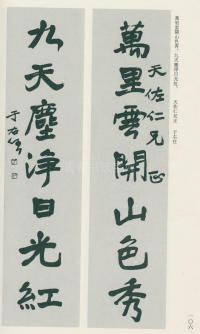 萬里雲開山色秀，九天塵淨日光紅。　天佐仁兄正　于右任
萬里雲開山色秀
天佐仁兄正
九天塵淨日光紅
于右任
一〇六